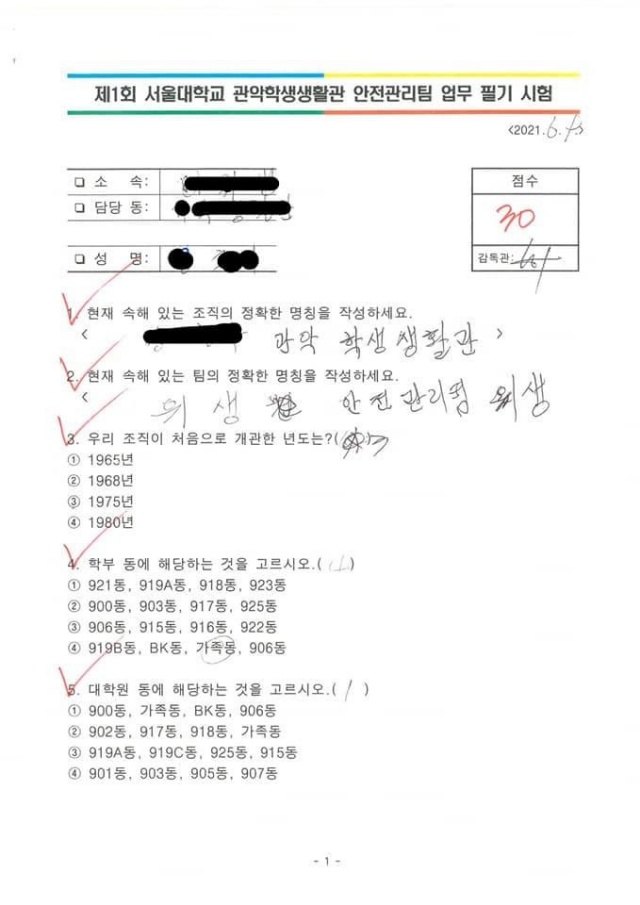 제1회 서울대학교 관악학생생활관 안전관리팀 업무 필기 시험
<2021. 6. >
□ 소 속:
□ 담당 동:
□ 성 명:
점수
30
감독관:
1. 현재 속해 있는 조직의 정확한 명칭을 작성하세요.
< 관악 학생생활관 >
2. 현재 속해 있는 팀의 정확한 명칭을 작성하세요.
< 위생 안전관리팀 위생
3. 우리 조직이 처음으로 개관한 년도는?( )
① 1965년
② 1968년
③ 1975년
④ 1980년
4. 학부 동에 해당하는 것을 고르시오.( )
① 921동, 919A동, 918동, 923동
② 900동, 903동, 917동, 925동
③ 906동, 915동, 916동, 922동
④ 919B동, BK동, 가족동, 906동
5. 대학원 동에 해당하는 것을 고르시오.( 1 )
① 900동, 가족동, BK동, 906동
② 902동, 917동, 918동, 가족동
③ 919A동, 919C동, 925동, 915동
④ 901동, 903동, 905동, 907동
- 1 -